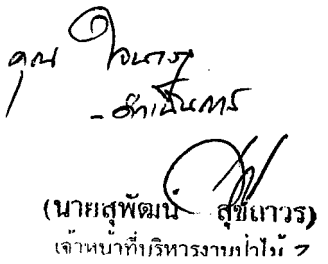 คุณ
- ดำเนินการ
(นายสุพัฒน์ สุขถาวร)
เจ้าหน้าที่บริหารงานป่าไม้ 7